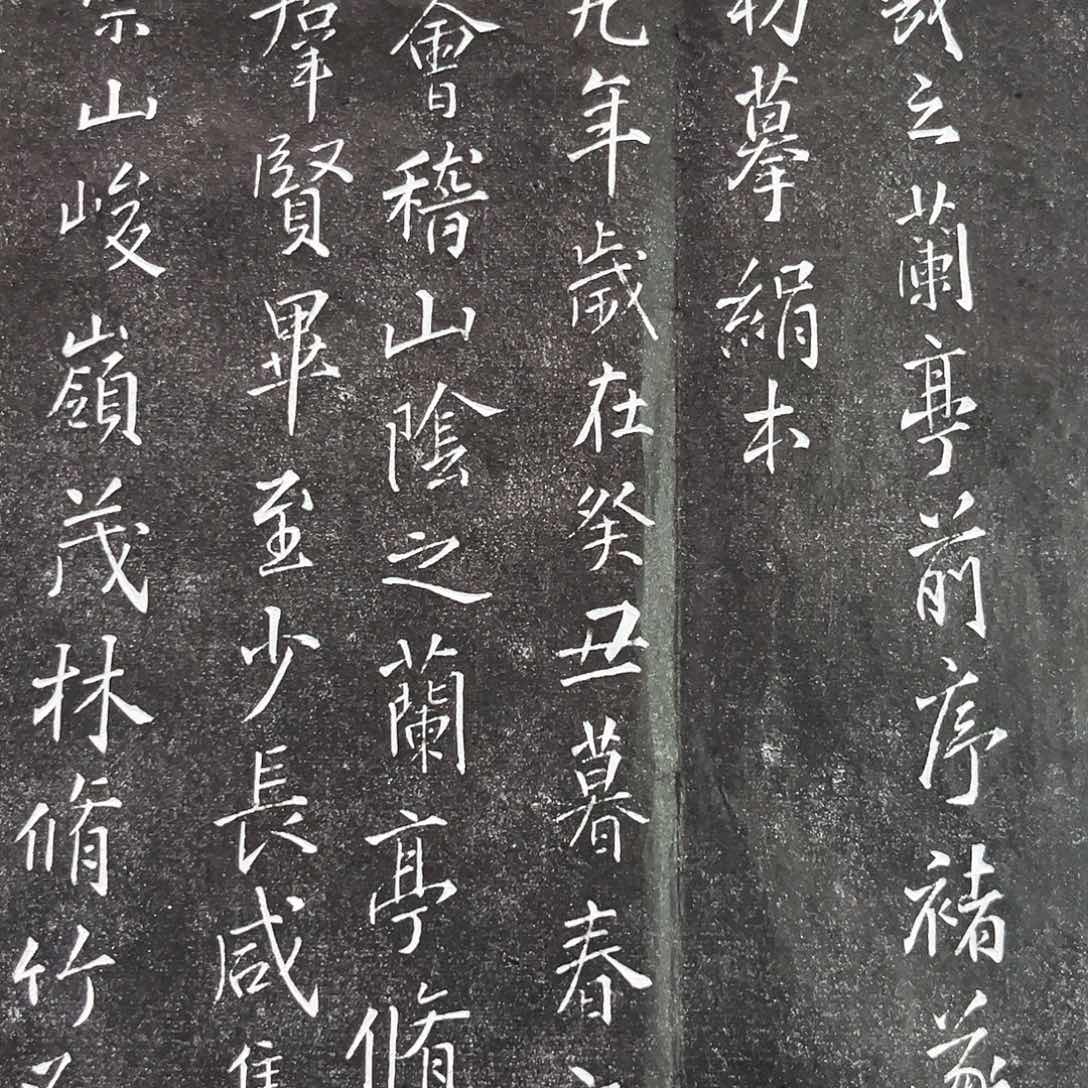 之蘭亭前序褚遂
摹絹本
九年歲在癸丑暮春
會稽山陰之蘭亭脩
羣賢畢至少長咸集
崇山峻嶺茂林脩竹又